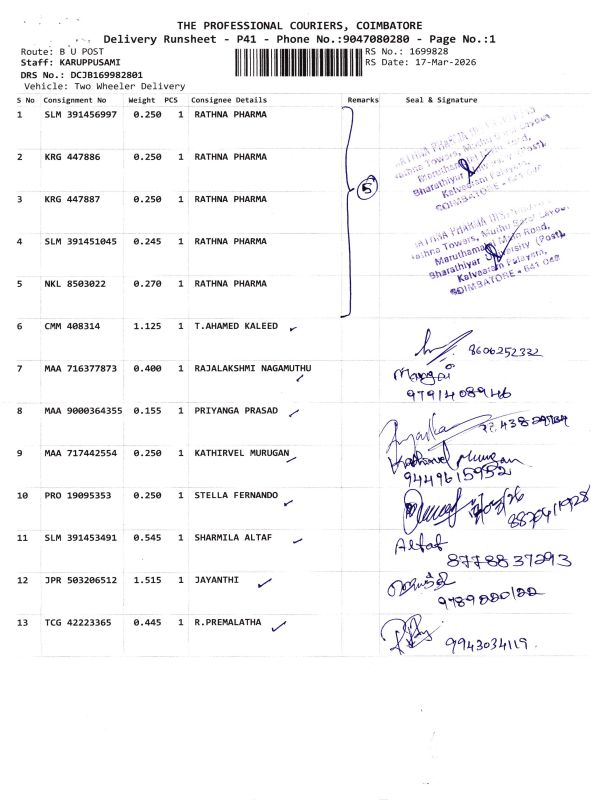 THE PROFESSIONAL COURIERS, COIMBATORE
Delivery Runsheet - P41 - Phone No.:9047080280 - Page No.:1
Route: B U POST
RS No.: 1699828
Staff: KARUPPUSAMI
RS Date: 17-Mar-2026
DRS No.: DCJB169982801
Vehicle: Two Wheeler Delivery
S No Consignment No Weight PCS Consignee Details Remarks Seal & Signature
1 SLM 391456997 0.250 1 RATHNA PHARMA
2 KRG 447886 0.250 1 RATHNA PHARMA
3 KRG 447887 0.250 1 RATHNA PHARMA
5
4 SLM 391451045 0.245 1 RATHNA PHARMA
Maruthamalai Main Road,
Bharathiyar University (Post),
Kalveeram Palayam,
COIMBATORE - 641 046
5 NKL 8503022 0.270 1 RATHNA PHARMA
6 CMM 408314 1.125 1 T.AHAMED KALEED ✓
8606252332
7 MAA 716377873 0.400 1 RAJALAKSHMI NAGAMUTHU ✓
Mangai
9791408946
8 MAA 9000364355 0.155 1 PRIYANGA PRASAD ✓
9 MAA 717442554 0.250 1 KATHIRVEL MURUGAN ✓
Kathirvel Murugan
9449615952
10 PRO 19095353 0.250 1 STELLA FERNANDO ✓
11 SLM 391453491 0.545 1 SHARMILA ALTAF ✓
Altaf
8778837293
12 JPR 503206512 1.515 1 JAYANTHI ✓
9789220122
13 TCG 42223365 0.445 1 R.PREMALATHA ✓
9943034119.